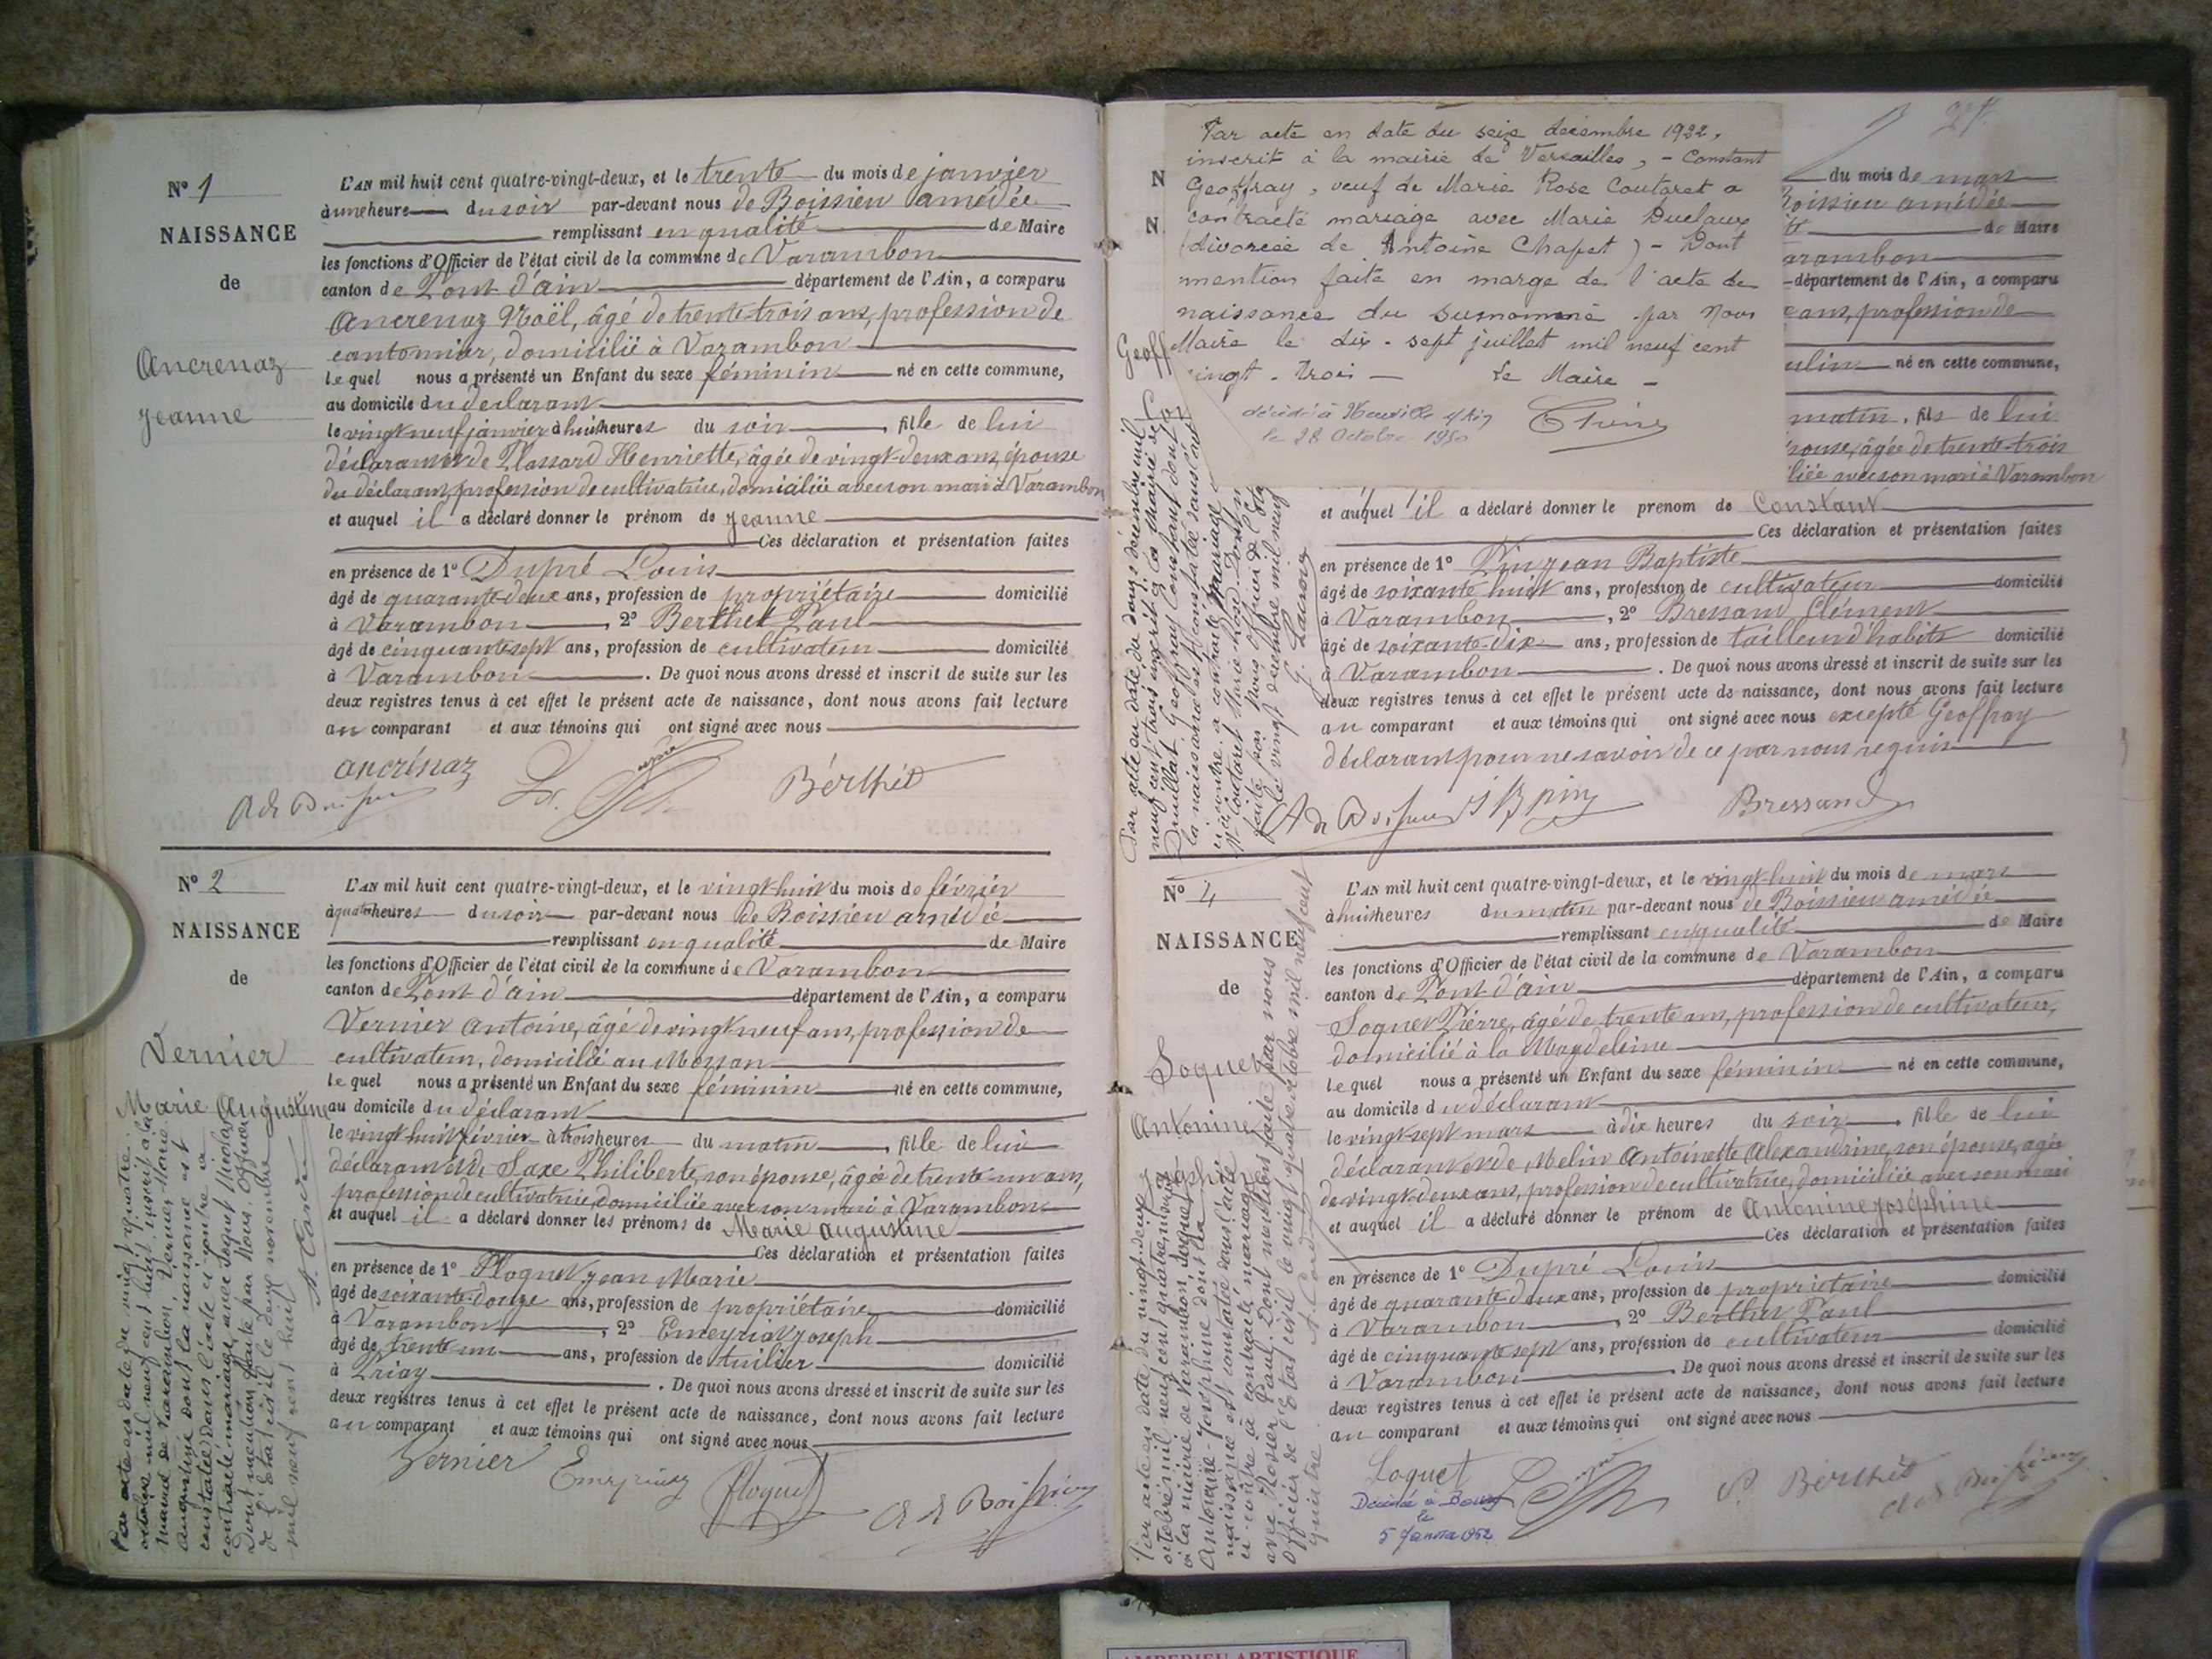 N° 1
NAISSANCE
de
Ancrenaz
Jeanne
L'AN mil huit cent quatre-vingt-deux, et le trente du mois de janvier
à une heure du soir par-devant nous de Boissieu amédée
remplissant en qualité de Maire
les fonctions d'Officier de l'état civil de la commune de Varambon
canton de Pont-d'ain département de l'Ain, a comparu
Ancrenaz Noël, âgé de trente-trois ans, profession de
cantonnier, domicilié à Varambon
lequel nous a présenté un Enfant du sexe féminin né en cette commune,
au domicile du déclarant
le vingt neuf janvier à huit heures du soir, fille de lui
déclarant et de Plassard Henriette, âgée de vingt-deux ans, épouse
du déclarant, profession de cultivatrice, domiciliée avec son mari à Varambon
et auquel il a déclaré donner le prénom de Jeanne
Ces déclaration et présentation faites
en présence de 1° Dupré Louis
âgé de quarante-deux ans, profession de propriétaire domicilié
à Varambon, 2° Berthet Paul
âgé de cinquante sept ans, profession de cultivateur domicilié
à Varambon. De quoi nous avons dressé et inscrit de suite sur les
deux registres tenus à cet effet le présent acte de naissance, dont nous avons fait lecture
au comparant et aux témoins qui ont signé avec nous
ancrénaz
Bérthet
N° 2
NAISSANCE
de
Vernier
Marie Augustine
L'AN mil huit cent quatre-vingt-deux, et le vingt-huit du mois de février
à quatre heures du soir par-devant nous de Boissieu amédée
remplissant en qualité de Maire
les fonctions d'Officier de l'état civil de la commune de Varambon
canton de Pont-d'ain département de l'Ain, a comparu
Vernier Antoine, âgé de vingt neuf ans, profession de
cultivateur, domicilié au
lequel nous a présenté un Enfant du sexe féminin né en cette commune,
au domicile du déclarant
le vingt-huit février à trois heures du matin, fille de lui
déclarant et de Saxe Philiberte, son épouse, âgée de trente-un ans,
profession de cultivatrice, domiciliée avec son mari à Varambon
et auquel il a déclaré donner les prénoms de Marie augustine
Ces déclaration et présentation faites
en présence de 1° Ploquet Jean Marie
âgé de soixante-douze ans, profession de propriétaire domicilié
à Varambon, 2° Joseph
âgé de trente un ans, profession de tuilier domicilié
à Priay. De quoi nous avons dressé et inscrit de suite sur les
deux registres tenus à cet effet le présent acte de naissance, dont nous avons fait lecture
au comparant et aux témoins qui ont signé avec nous
Vernier
Ploquet
Par acte en date du cinq quatre
octobre mil neuf cent huit, inscrit à la
mairie de Varambon, Vernier Marie
Augustine dont la naissance est
constatée dans l'acte ci-contre a
contracté mariage avec Soquet Nicolas
Dont mention faite par Nous, Officier
de l'Etat civil le deux novembre
mil neuf cent huit
Par acte en date du seize décembre 1922,
inscrit à la mairie de Versailles, - Constant
Geoffray, veuf de Marie Rose Coutaret a
contracté mariage avec Marie Duclaux
(divorcée de Antoine Chapet) - Dont
mention faite en marge de l'acte de
naissance du surnommé par Nous
Maire le dix-sept juillet mil neuf cent
vingt-trois
Le Maire
le 28 Octobre 1950
du mois de mars
Boissieu amédée
de Maire
arambon
département de l'Ain, a comparu
ans, profession de
culin né en cette commune,
matin, fils de lui
épouse, âgée de trente-trois
liée avec son mari à Varambon
et auquel il a déclaré donner le prénom de Constant
Ces déclaration et présentation faites
en présence de 1° Pin Jean Baptiste
âgé de soixante huit ans, profession de cultivateur domicilié
à Varambon, 2° Bressand Clément
âgé de soixante-dix ans, profession de tailleur d'habits domicilié
à Varambon. De quoi nous avons dressé et inscrit de suite sur les
deux registres tenus à cet effet le présent acte de naissance, dont nous avons fait lecture
au comparant et aux témoins qui ont signé avec nous excepté Geoffray
déclarant pour ne savoir de ce par nous requis
J B pin
Bressand
Geoff
Par acte en date du douze décembre mil
neuf cent trois inscrit à la mairie de
Geoffray Constant dont
la naissance est constatée dans l'acte
ci-contre, a contracté mariage
Coutaret Marie-Rose. Dont mention
faite par Nous officier de l'état
le vingt décembre mil neuf
G. Lacroix
N° 4
NAISSANCE
de
Soquet
Antonine
L'AN mil huit cent quatre-vingt-deux, et le vingt-huit du mois de mars
à huit heures du matin par-devant nous de Boissieu amédée
remplissant en qualité de Maire
les fonctions d'Officier de l'état civil de la commune de Varambon
canton de Pont d'ain département de l'Ain, a comparu
Soquet Pierre, âgé de trente ans, profession de cultivateur,
domicilié à la Magdeleine
lequel nous a présenté un Enfant du sexe féminin né en cette commune,
au domicile du déclarant
le vingt-sept mars à dix heures du soir, fille de lui
déclarant et de Melin Antoinette Alexandrine, son épouse, agée
de vingt-deux ans, profession de cultivatrice, domiciliée avec son mari
et auquel il a déclaré donner le prénom de Antonine Joséphine
Ces déclaration et présentation faites
en présence de 1° Dupré Louis
âgé de quarante-deux ans, profession de propriétaire domicilié
à Varambon, 2° Berthet Paul
âgé de cinquante sept ans, profession de cultivateur domicilié
à Varambon. De quoi nous avons dressé et inscrit de suite sur les
deux registres tenus à cet effet le présent acte de naissance, dont nous avons fait lecture
au comparant et aux témoins qui ont signé avec nous
Soquet
P. Bérthet
Décédée à Bourg
le
5 Janvier 1952
Par acte en date du vingt-deux
octobre mil neuf cent quatre, inscrit
à la mairie de Varambon, Soquet
Antonine-Joséphine dont la
naissance est constatée dans l'acte
ci-contre a contracté mariage
avec Rosier Paul. Dont mention faite par nous
Officier de l'Etat civil le vingt quatre octobre mil neuf cent
quatre
AMBERIEU ARTISTIQUE